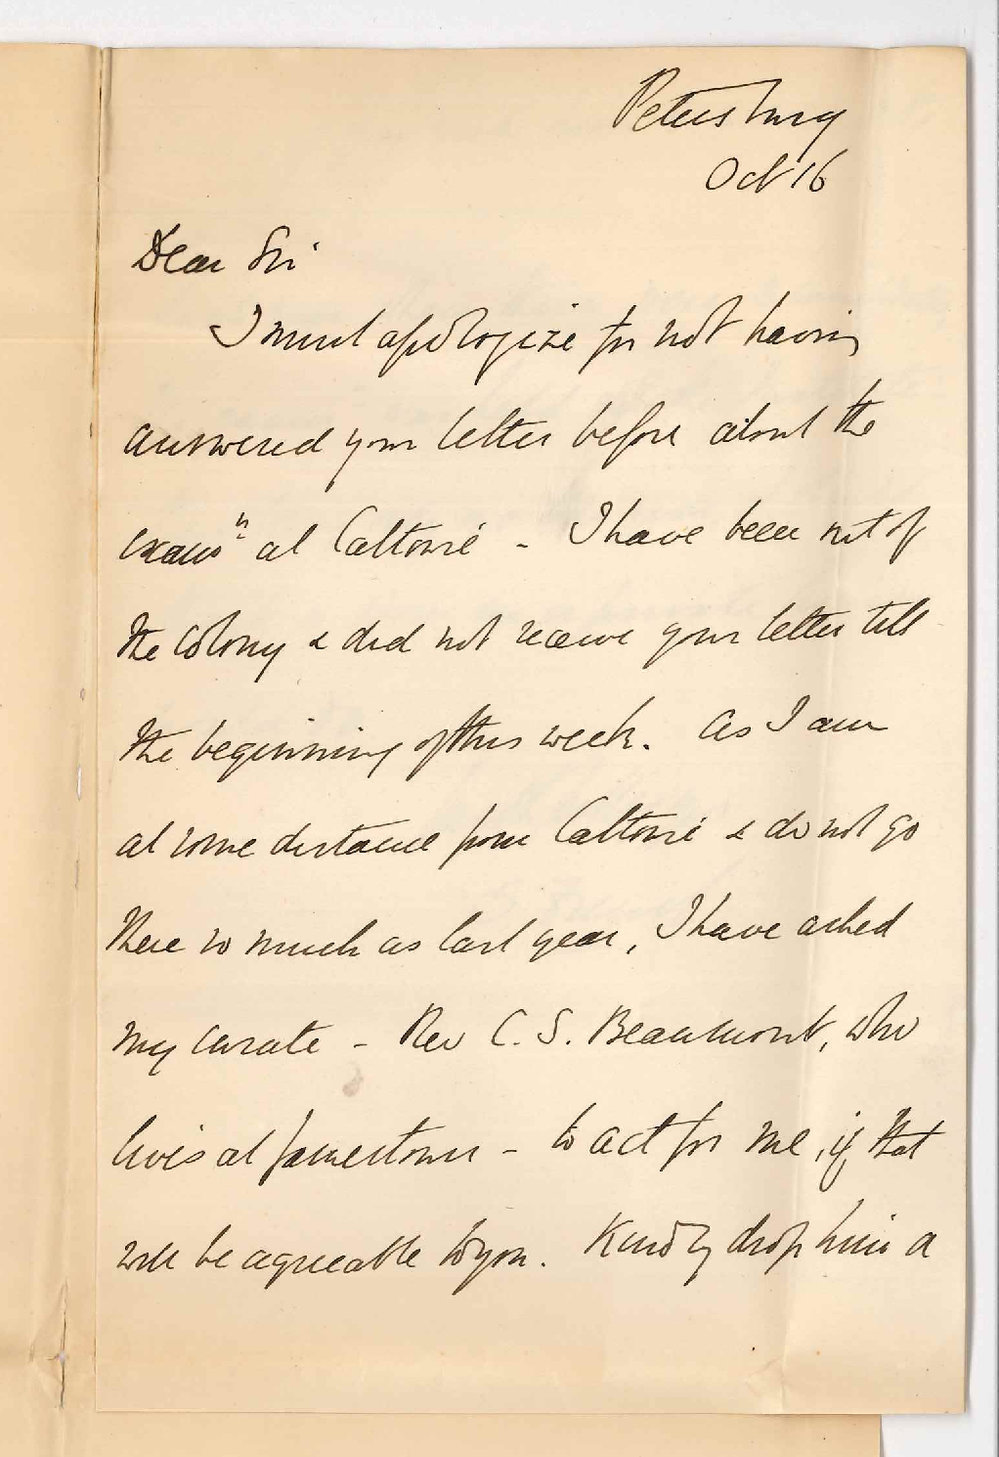 Petersburg
Oct 16
Dear Sir
I must apologize for not having
answered your letter before about the
exam<sup>n</sup> at Caltowie - I have been out of
the colony & did not receive your letter till
the beginning of this week. As I am
at some distance from Caltowie & do not go
there so much as last year, I have asked
my curate - Rev C. S. Beaumont, who
lives at Jamestown - to act for me, if that
will be agreeable to you. Kindly drop him a